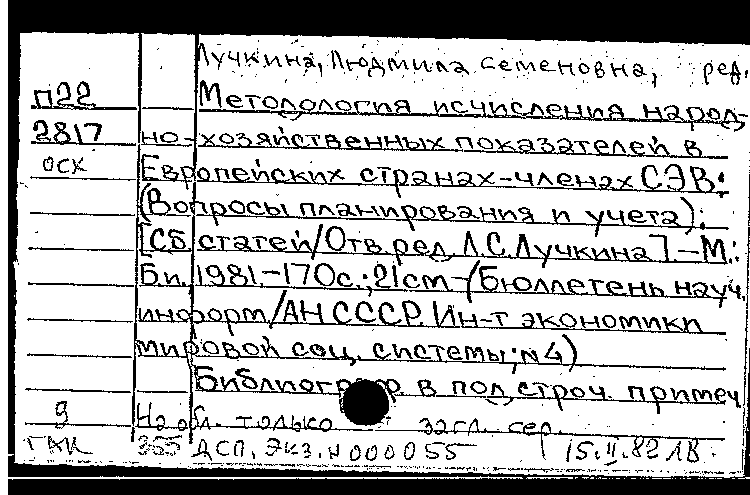 Лучкина, Людмила Семеновна, ред.
П22 Методология исчисления народ-
2817 но-хозяйственных показателей в
ОСК Европейских странах-членах СЭВ:
(Вопросы планирования и учета):
[Сб. статей/Отв. ред. Л.С. Лучкина]. - М.:
Б.и. 1981. - 170с.; 21см - (Бюллетень науч.
информ/АН СССР. Ин-т экономики
мировой соц. системы; N4)
Библиогр в подстроч. примеч
9 На обл. только загл. сер.
ГАК 355 ДСП. Экз. N 000055 15.II.82 ЛВ.